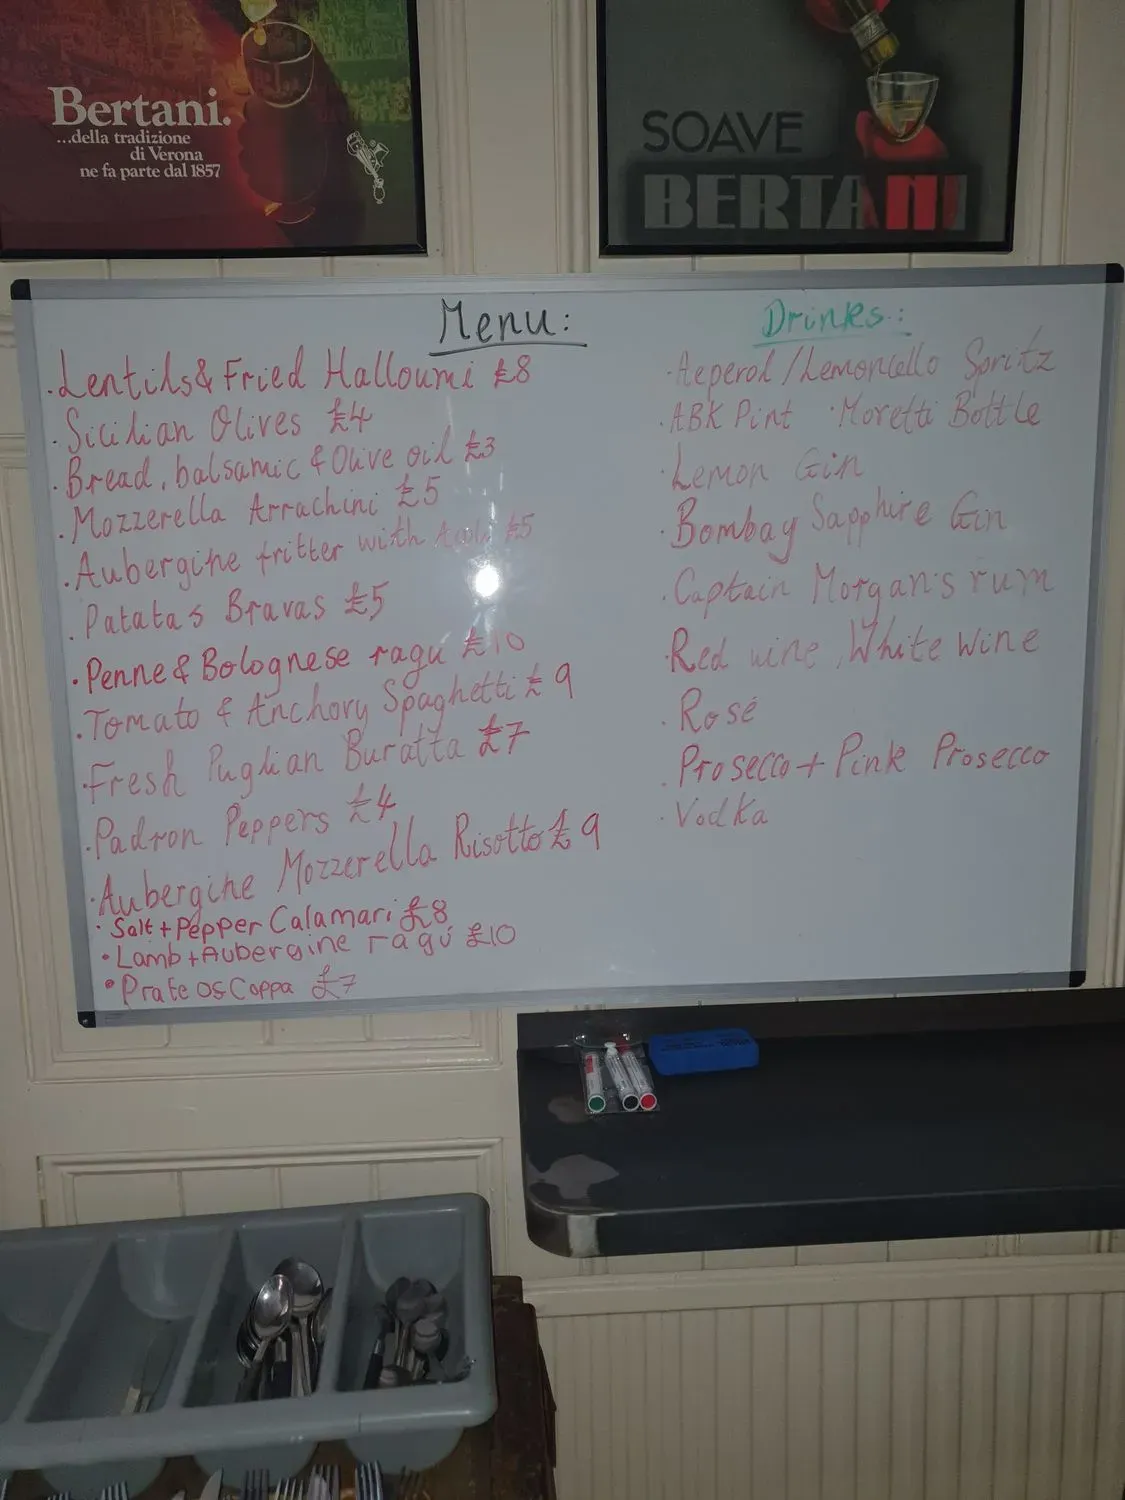 Bertani.
...della tradizione
di Verona
ne fa parte dal 1857
SOAVE
BERTANI
Menu:
·Lentils & Fried Halloumi £8
·Sicilian Olives £4
·Bread, balsamic & Olive oil £3
·Mozzerella Arrachini £5
·Aubergine fritter with £5
·Patatas Bravas £5
·Penne & Bolognese ragu £10
·Tomato & Anchovy Spaghetti £9
·Fresh Puglian Buratta £7
·Padron Peppers £4
·Aubergine Mozzerella Risotto £9
·Salt + Pepper Calamari £8
·Lamb + Aubergine ragú £10
·Prate os Coppa £7
Drinks:
·Aeperol / Lemoncello Spritz
·ABK Pint ·Moretti Bottle
·Lemon Gin
·Bombay Sapphire Gin
·Captain Morgan's rum
·Red wine, White wine
·Rosé
·Prosecco + Pink Prosecco
·Vodka